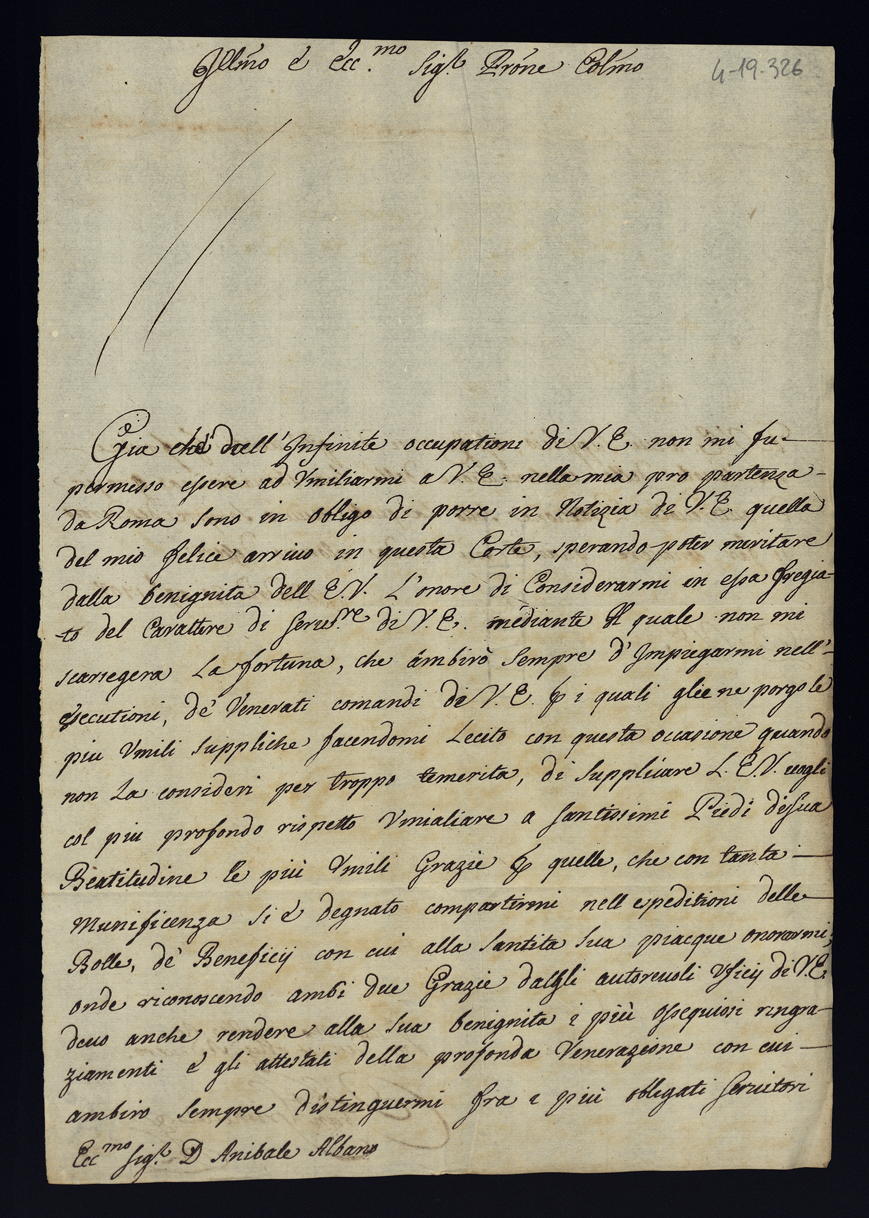 Jllmo è Ecc.mo Sigr Prõne Colmo
4-19-326
Gia chè dall' Jnfinite occupationi di V.E. non mi fu
permesso essere ad Vmiliarmi a V.E. nella mia pro partenza
da Roma sono in obligo di porre in Notizia di V.E. quella
del mio felice arriuo in questa Corte, sperando poter meritare
dalla benignita dell E.V. L'onore di Considerarmi in essa fregia-
to del Carattere di serure di V.E. mediante Il quale non mi
scarsegera La fortuna, che ambirò sempre d'Jmpiegarmi nell'
esecutioni, de' Venerati comandi di V.E. p i quali gliene porgo le
piu Vmili suppliche facendomi Lecito con questa occasione quando
non La consideri per troppo temerita, di supplicare L.E.V. uogli
col piu profondo rispetto Vmialiare a santissimi Piedi di sua
Beatitudine le più Vmili Grazie p quelle, che con tanta
Munificenza si è degnato compartirmi nell espeditioni delle
Bolle, de' Beneficij con cui alla santita sua piacque onorarmi;
onde riconoscendo ambi due Grazie dalgli autoreuoli Vficij di V.E.
deuo anche rendere alla sua benignita i più ossequiosi ringra-
ziamenti è gli attestati della profonda Venerazione con cui
ambiro sempre distinguermi fra i più obligati seruitori
Eccmo sigr D Anibale Albano